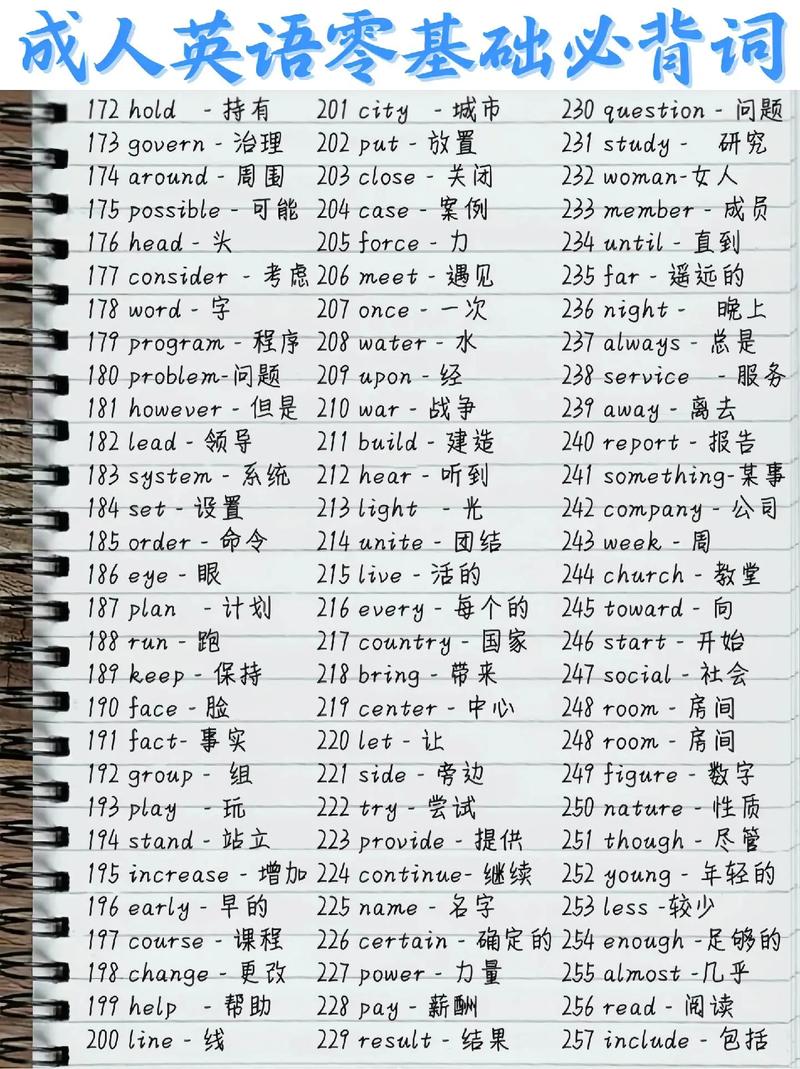 成人英语零基础必背词
172 hold - 持有
173 govern - 治理
174 around - 周围
175 possible - 可能
176 head - 头
177 consider - 考虑
178 word - 字
179 program - 程序
180 problem-问题
181 however - 但是
182 lead - 领导
183 system - 系统
184 set - 设置
185 order - 命令
186 eye - 眼
187 plan - 计划
188 run - 跑
189 keep - 保持
190 face - 脸
191 fact- 事实
192 group - 组
193 play - 玩
194 stand - 站立
195 increase - 增加
196 early - 早的
197 course - 课程
198 change - 更改
199 help - 帮助
200 line - 线
201 city - 城市
202 put - 放置
203 close - 关闭
204 case - 案例
205 force - 力
206 meet - 遇见
207 once - 一次
208 water - 水
209 upon - 经
210 war - 战争
211 build - 建造
212 hear - 听到
213 light - 光
214 unite - 团结
215 live - 活的
216 every - 每个的
217 country - 国家
218 bring - 带来
219 center - 中心
220 let - 让
221 side - 旁边
222 try - 尝试
223 provide - 提供
224 continue- 继续
225 name - 名字
226 certain - 确定的
227 power - 力量
228 pay - 薪酬
229 result - 结果
230 question - 问题
231 study - 研究
232 woman-女人
233 member - 成员
234 until - 直到
235 far - 遥远的
236 night - 晚上
237 always - 总是
238 service - 服务
239 away - 离去
240 report - 报告
241 something-某事
242 company - 公司
243 week - 周
244 church - 教堂
245 toward - 向
246 start - 开始
247 social - 社会
248 room - 房间
248 room - 房间
249 figure - 数字
250 nature - 性质
251 though - 尽管
252 young - 年轻的
253 less -较少
254 enough -足够的
255 almost -几乎
256 read - 阅读
257 include - 包括